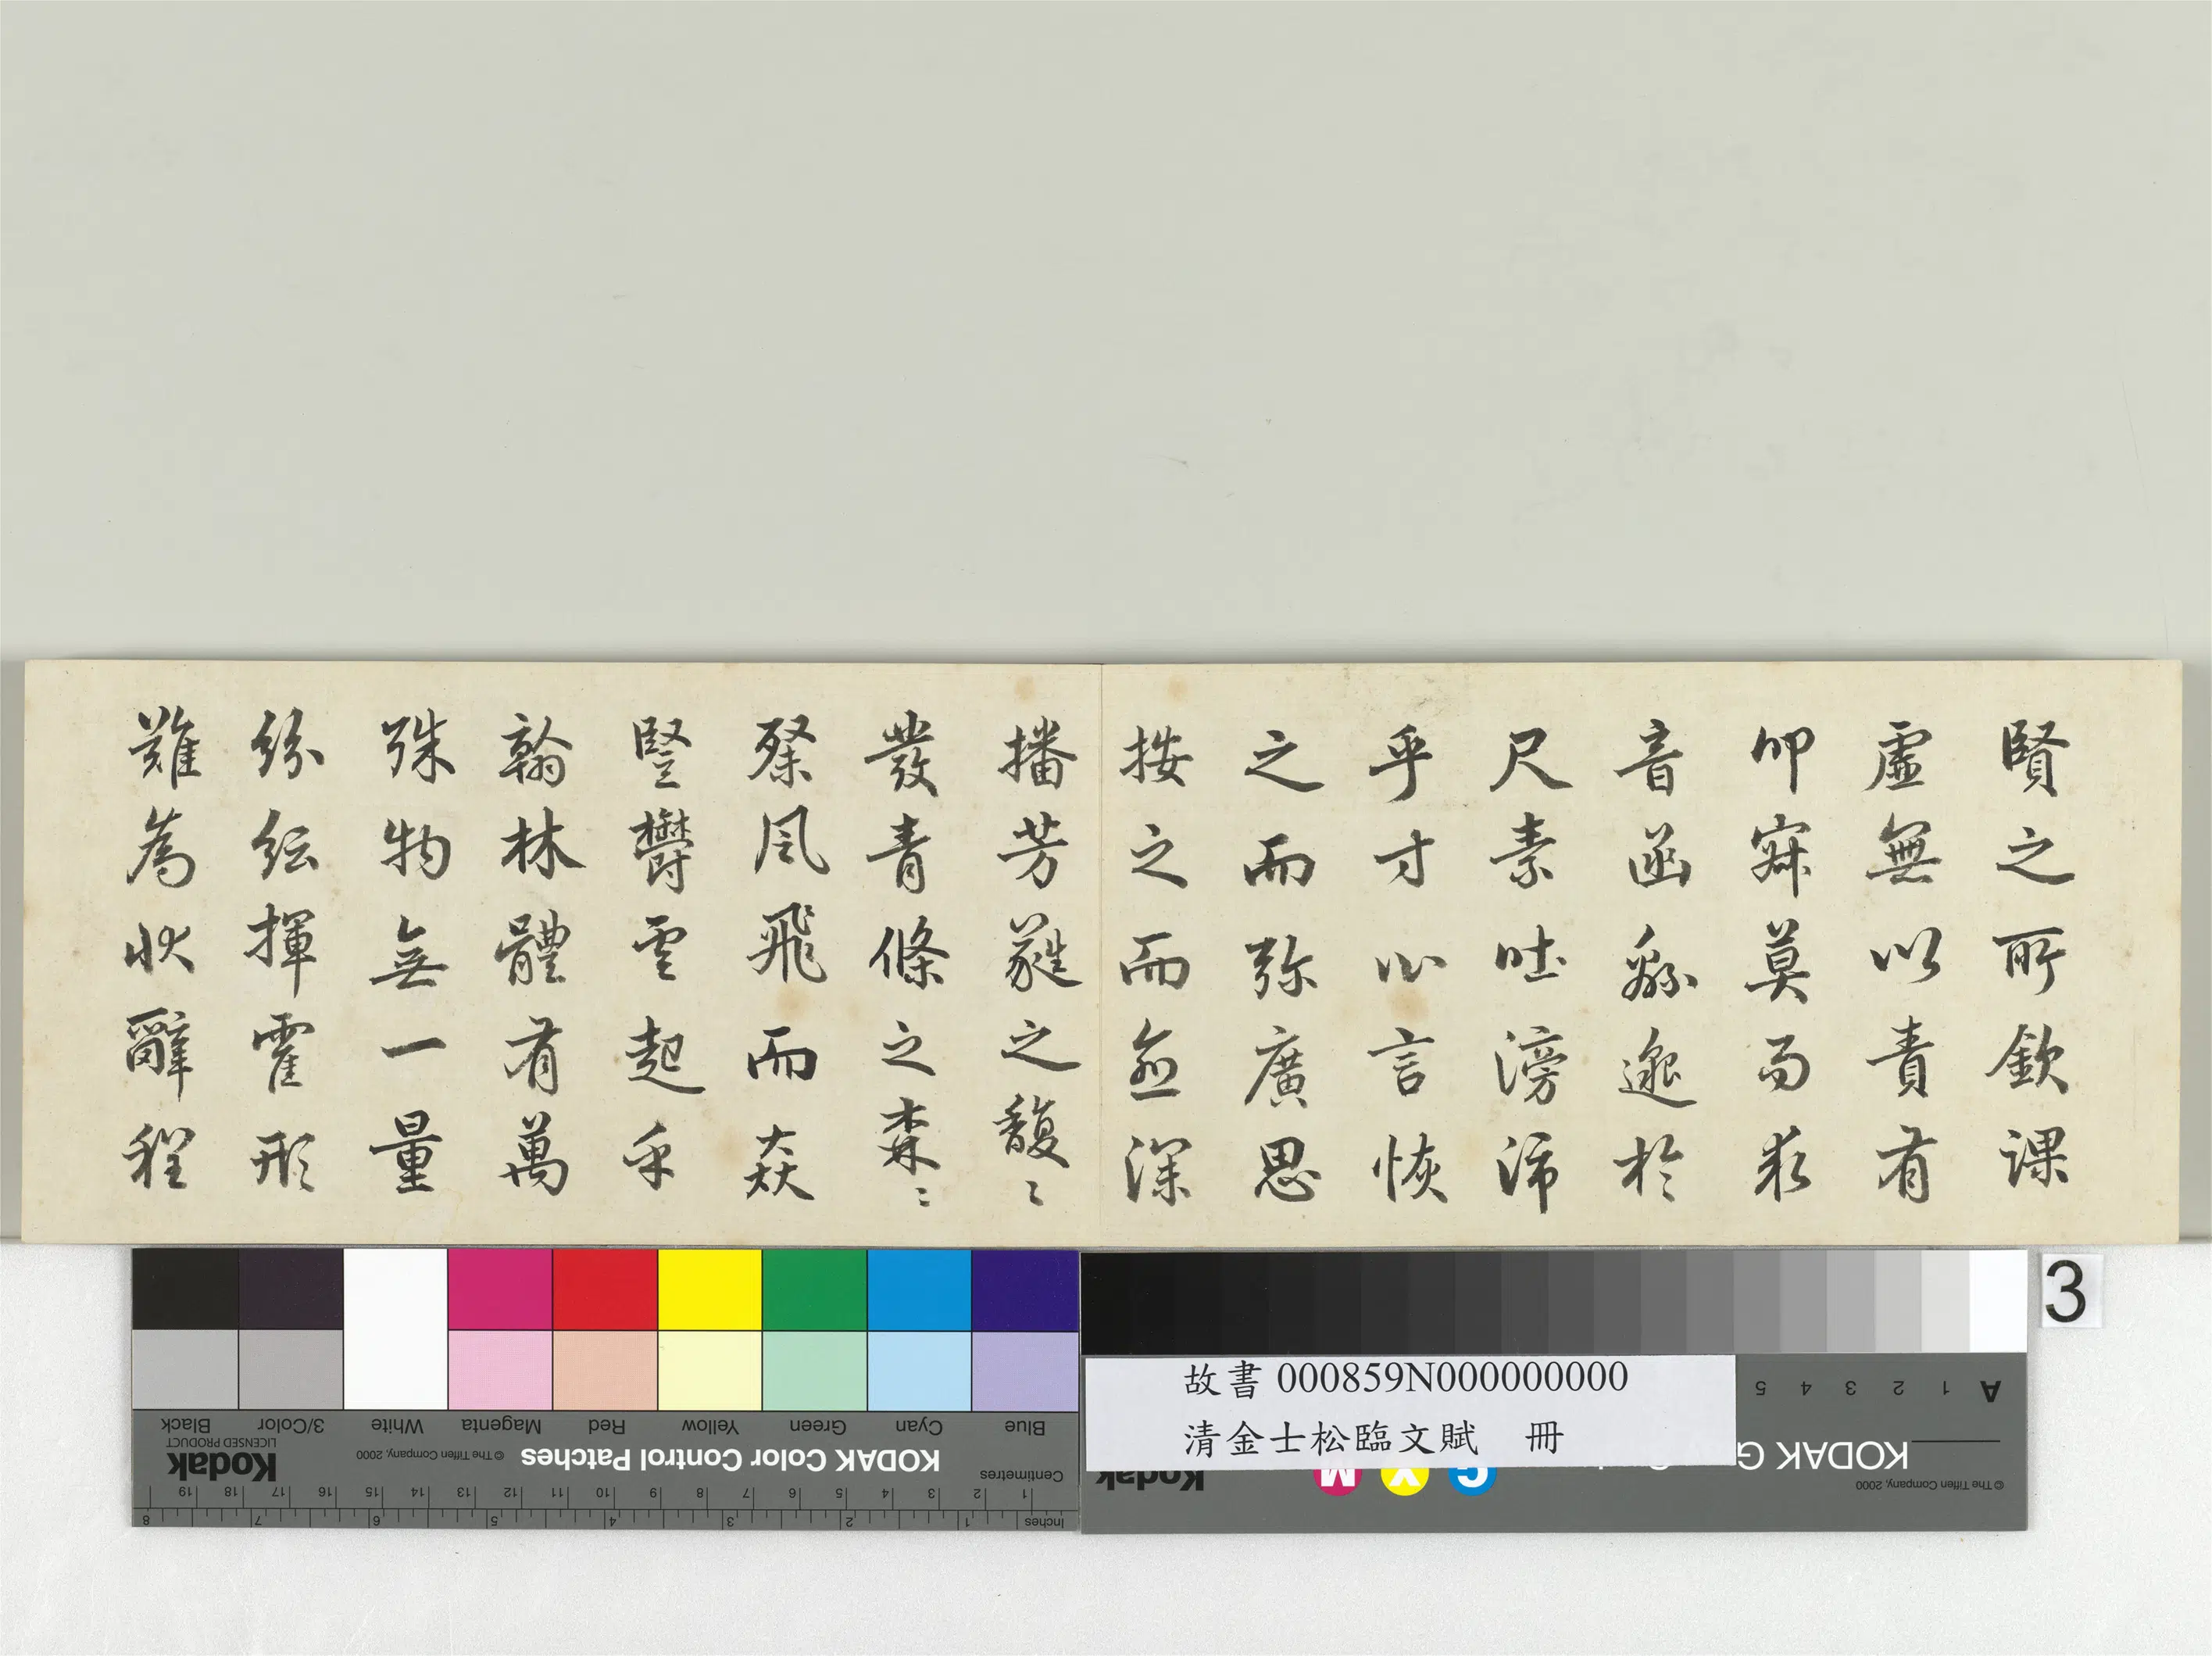 賢之所欽課
虛無以責有
叩寂莫而求
音函緜邈於
尺素吐滂沛
乎寸心言恢
之而彌廣思
按之而愈深
播芳蕤之馥〻
發青條之森〻
粲風飛而猋
豎欝雲起乎
翰林體有萬
殊物無一量
紛紜揮霍形
難為狀辭程
3
故書 000859N000000000
清金士松臨文賦 冊
Blue
Cyan
Green
Yellow
Red
Magenta
White
3/Color
Black
KODAK Color Control Patches
© The Tiffen Company, 2000
Kodak
LICENSED PRODUCT
Centimetres
1 2 3 4 5 6 7 8 9 10 11 12 13 14 15 16 17 18 19
Inches
1 2 3 4 5 6 7 8
A 1 2 3 4 5
KODAK G
© The Tiffen Company, 2000
Kodak
C Y M